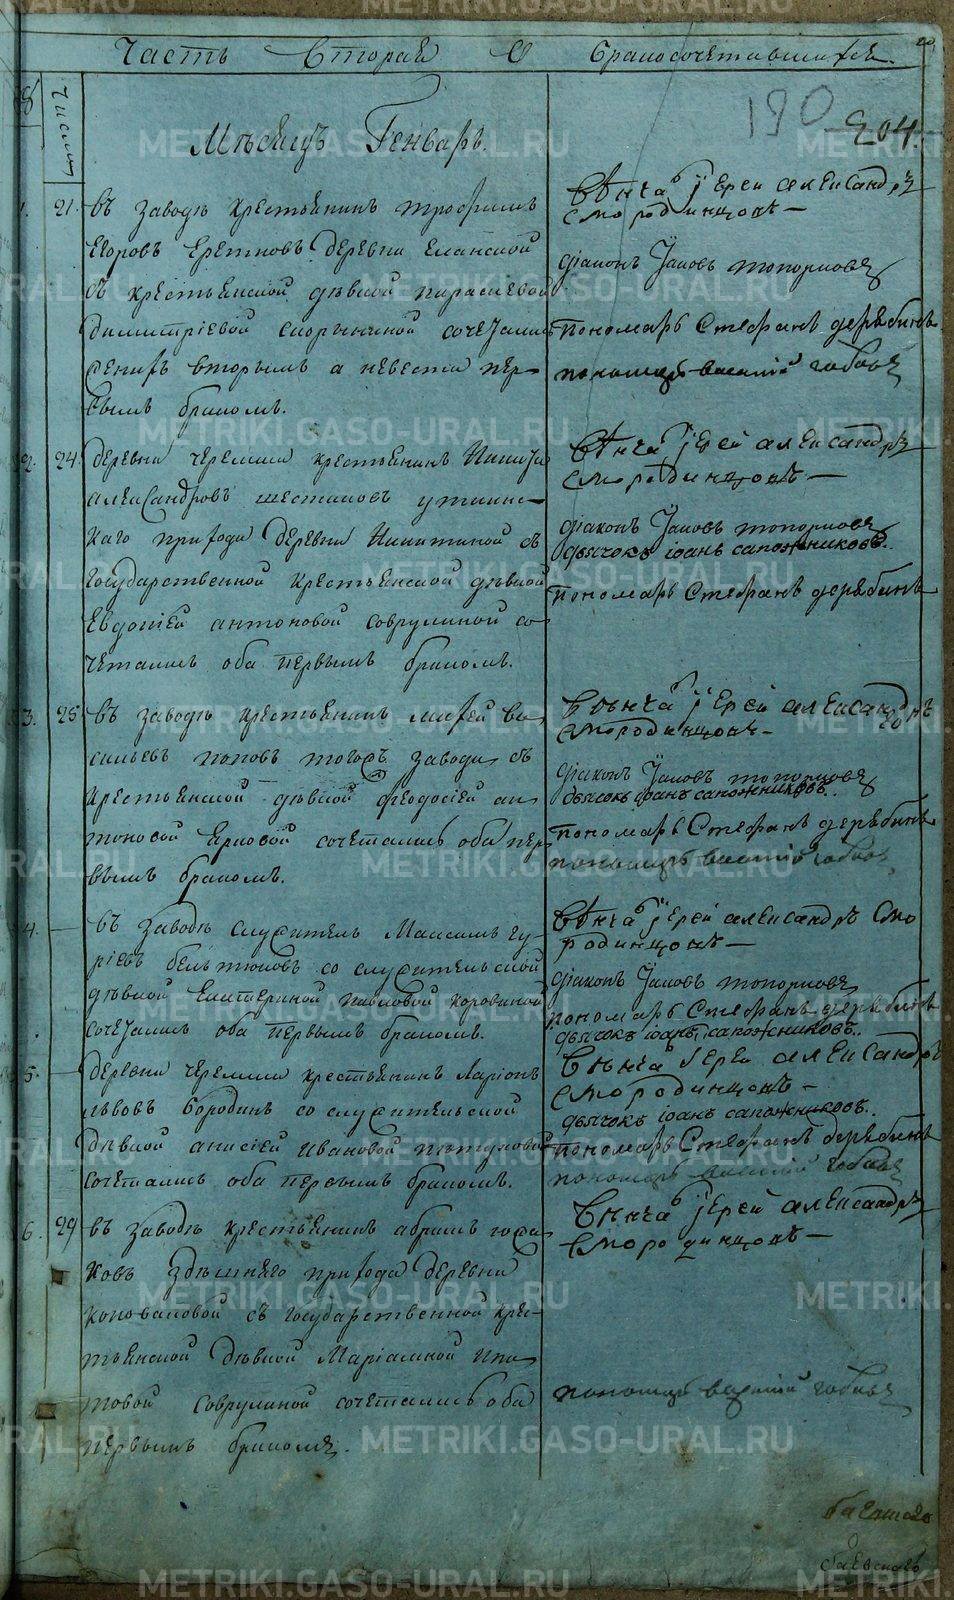 Часть Вторая О бракосочетавшихся.
190
204.
число
Месяцъ Генварь.
1. 21. въ заводе крестьянинъ трофимъ
Егоровъ деревни Еланской
съ крестьянской девкой параскевой
димитріевой сочетались
женихъ вторымъ а невеста пер-
вымъ бракомъ.
Венча іерей александръ
смородинцовъ
діаконъ Іаковъ топорковъ
пономарь Стефанъ дерябинъ
пономарь василій
2. 24. деревни черемши крестьянинъ Никита
александровъ шестаковъ
каго прихода деревни Никитиной съ
государственной крестьянской девкой
Евдокіей антоновой соврулиной со-
четались оба первымъ бракомъ.
Венча іерей александръ
смородинцовъ
діаконъ Іаковъ топорковъ
дьячокъ іоанъ сапожниковъ.
пономарь Стефанъ дерябинъ
3. 25. въ заводе крестьянинъ ва-
сильевъ поповъ тогожъ завода съ
крестьянской девкой феодосіей ан-
тоновой сочетались оба пер-
вымъ бракомъ.
Венча іерей александръ
смородинцовъ
діаконъ Іаковъ топорковъ
дьячокъ іоанъ сапожниковъ.
пономарь Стефанъ дерябинъ
пономарь василій
4. — въ заводе служитель Максимъ гу-
ріевъ бельтюковъ со служительской
девкой Екатериной павловой коровиной
сочетались оба первымъ бракомъ.
Венча іерей александръ смо
родинцовъ
діаконъ Іаковъ топорковъ
пономарь Стефанъ дерябинъ
дьячокъ іоанъ сапожниковъ.
5. — деревни черемши крестьянинъ Ларіонъ
львовъ бородинъ со служительской
девкой анисіей ивановой
сочетались оба первымъ бракомъ.
Венча іерей александръ
смородинцовъ
дьячокъ іоанъ сапожниковъ.
пономарь Стефанъ дерябинъ
пономарь василій
6. 29 въ заводе крестьянинъ абрамъ
ковъ здешнего прихода деревни
коноваловой съ государственной крес-
тьянской девкой Маріамной ипа-
товой соврулиной сочетались оба
первымъ бракомъ.
Венча іерей александръ
смородинцовъ
пономарь василій
METRIKI.GASO-URAL.RU